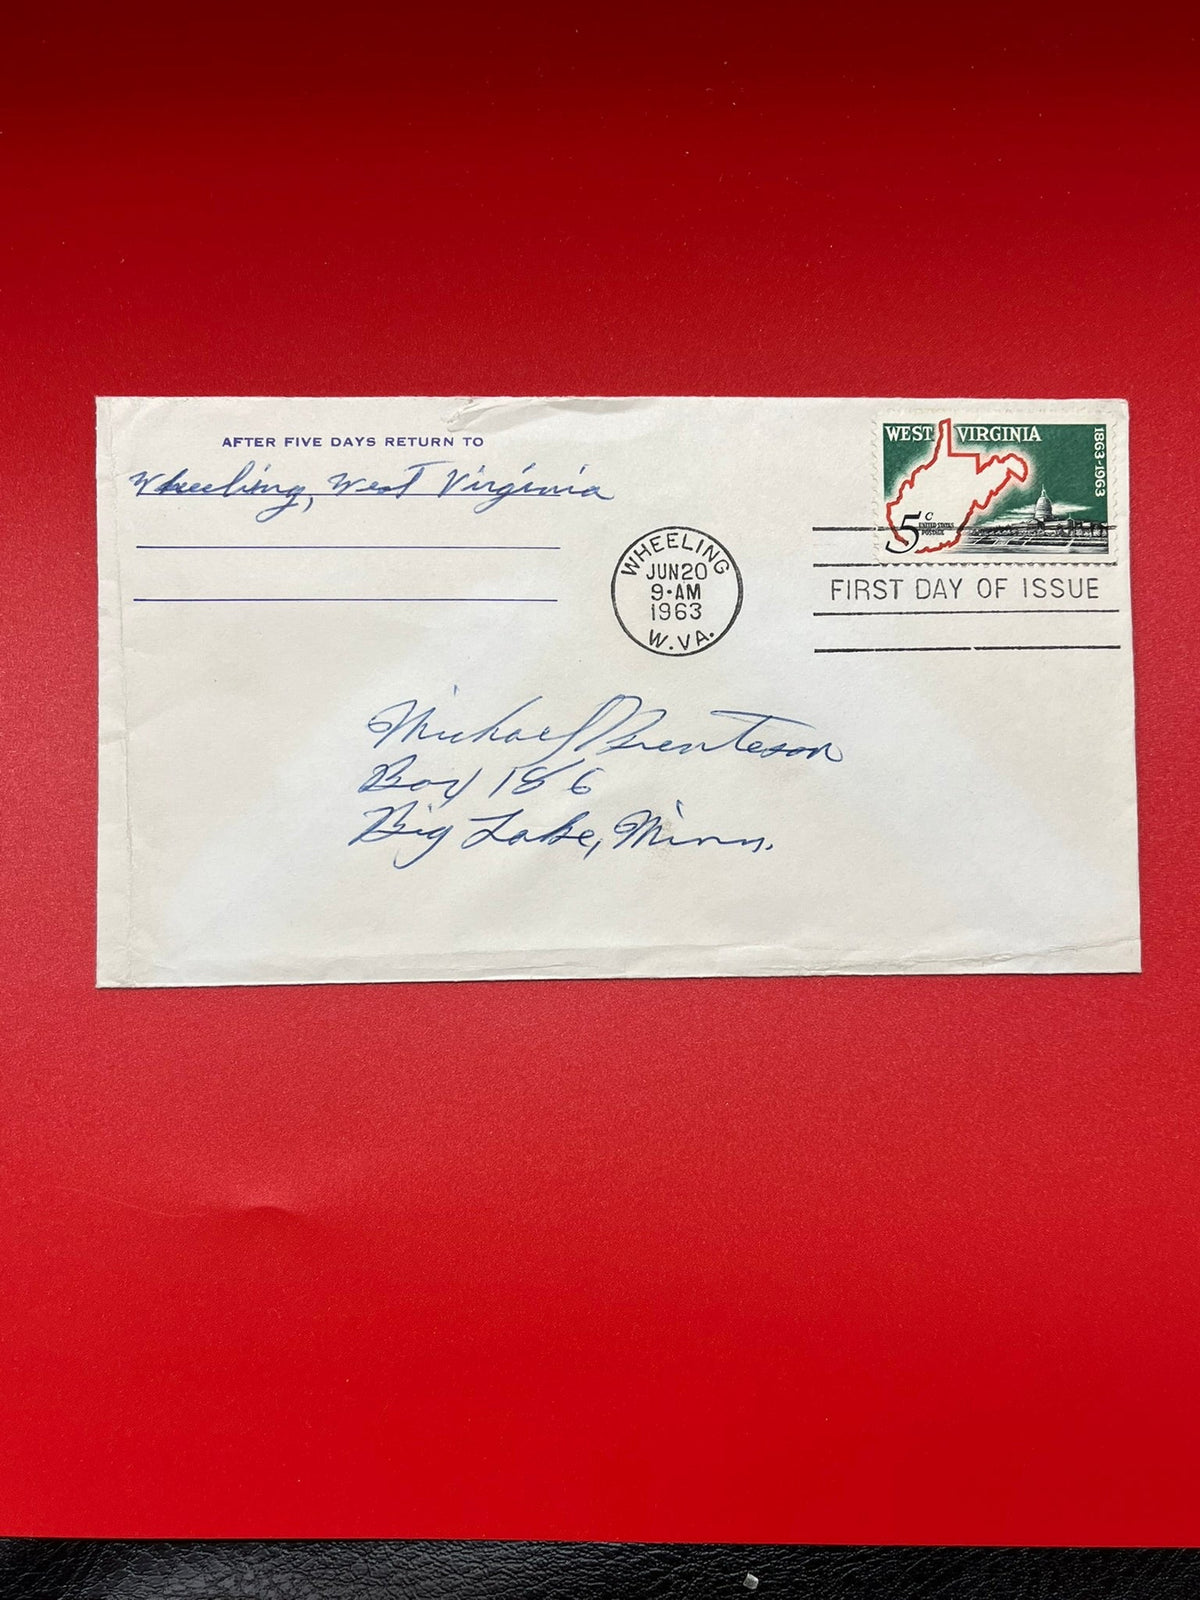 AFTER FIVE DAYS RETURN TO
Wheeling, West Virginia
WEST VIRGINIA
1863-1963
5c
UNITED STATES
POSTAGE
WHEELING
JUN 20
9·AM
1963
W.VA.
FIRST DAY OF ISSUE
Michael Brenteson
Box 186
Big Lake, Minn.